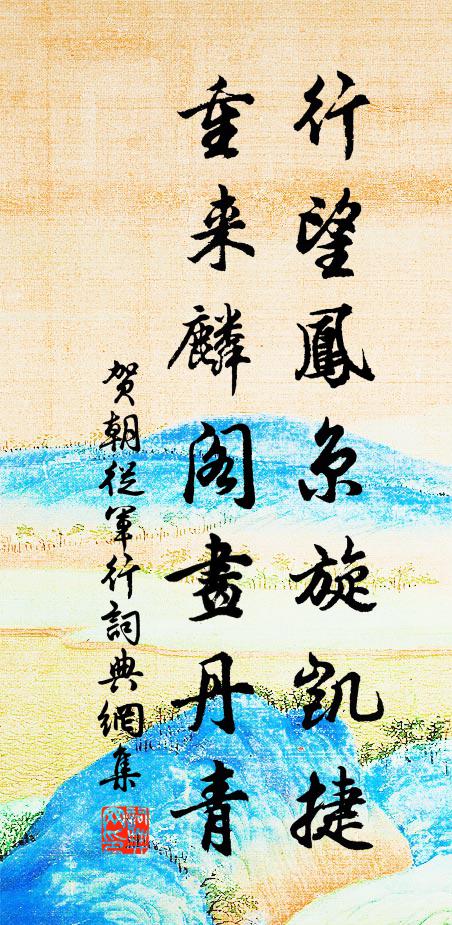 行望鳳京旋凱捷
重来麟阁畫丹青
贺朝従军行詞典網集